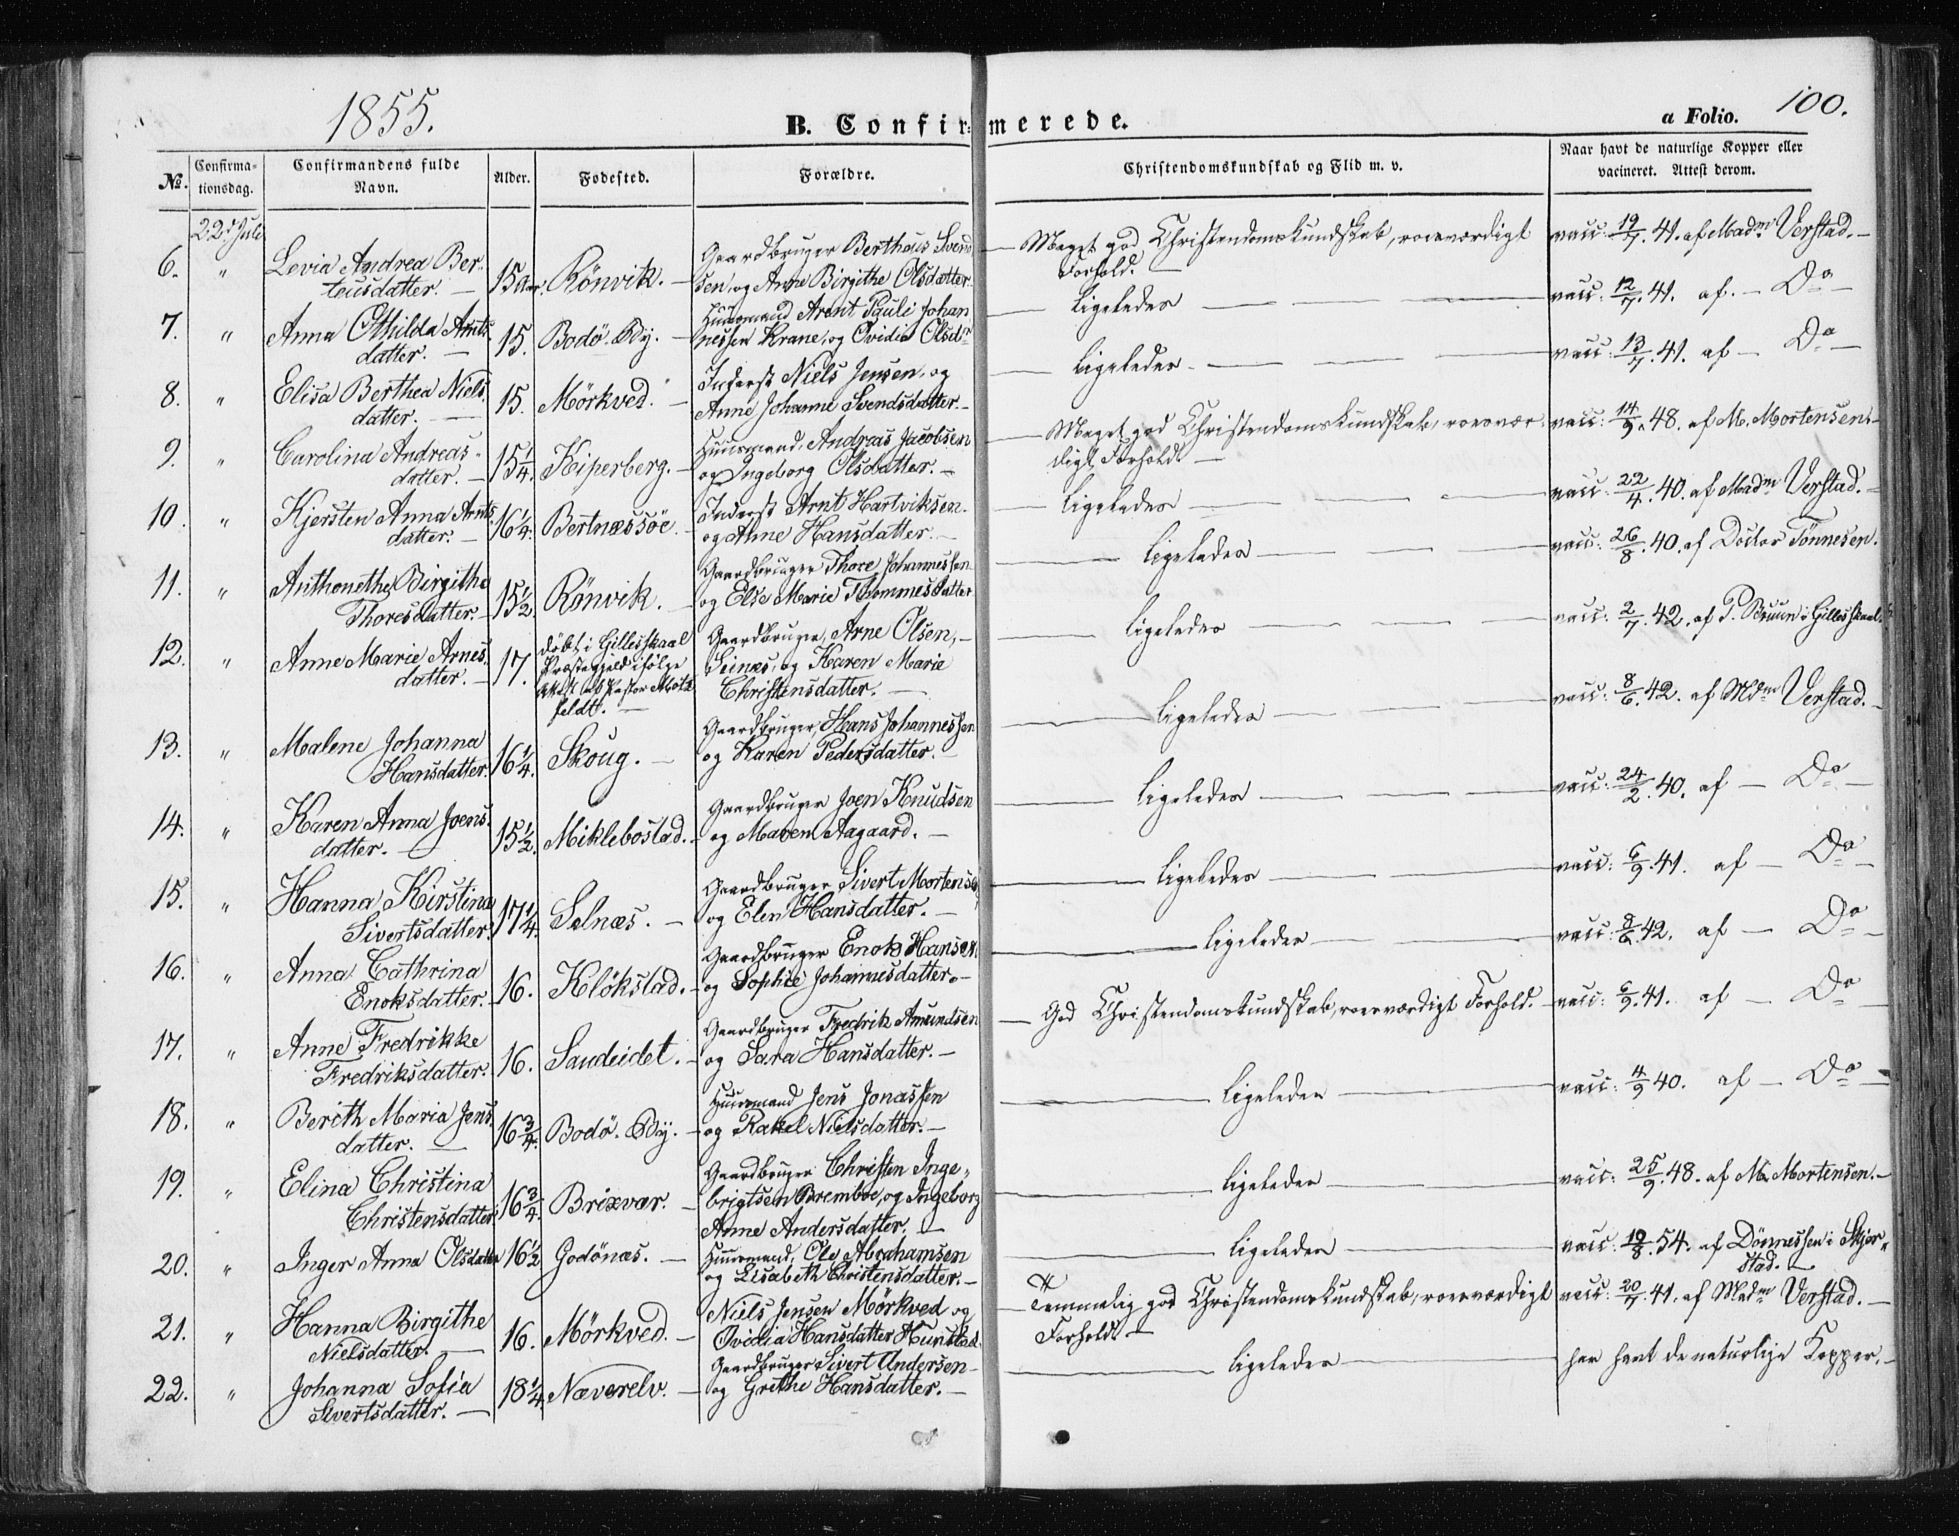 1855.
B. Confirmerede.
a Folio. 100.
No. Confirma-tionsdag. Confirmandens fulde Navn. Alder. Fødested. Forældre. Christendomskundskab og Flid m. v. Naar havt de naturlige Kopper eller vacineret. Attest derom.
22d Juli
6. " Levia Andrea Ber- 15 aar. Rönvik. — Gaardbruger Berthous Svend — Meget god Christendomskundskab, roesværdigt vacc: 19/7. 41. af Madm Verstad. —
teusdatter. — sen, og Anne Birgithe Olsdatter. Forhold. —
7. " Anna Othilda Arnts 15. Bodö By. — Huusmand Arent Pauli Johan — Ligeledes — vacc: 12/7. 41. af — Do —
datter. — nessen Krane, og Ovidia Olsdr
8. " Elisa Berthea Niels 15. Mörkved. — Inderst Niels Jensen, og — Ligeledes — vacc: 13/7. 41. af — Do —
datter. — Anne Johanne Svendsdatter. —
9. " Carolina Andreas- 15 1/4 Kiperberg. — Huusmand, Andreas Jacobsen — Meget god Christendomskundskab, roesvær- vacc: 14/9. 48. af M. Mortensen. —
datter. — og Ingeborg Olsdatter. — digt Forhold. —
10. " Kjersten Anna Arnts 16 1/4. Bertnæssöe. — Inderst Arnt Hartviksen — Ligeledes — vacc: 22/4. 40. af Madm Verstad. —
datter. — og Anne Hansdatter. —
11. " Anthonethe Birgithe 15 1/2 Rönvik. — Gaardbruger Thore Johannessen — Ligeledes — vacc: 26/8. 40. af Doctor Tönnesen.
Thoresdatter. — og Else Marie Thommesdatter
12. " Anne Marie Arnes 17. döbt i Gillesskaal Gaardbruger, Arne Olsen, — — Ligeledes — vacc: 2/7. 42. af P. Bruun i Gillesskaal.
datter. — Præstegjeld ifölge Seines, og Karen Marie
Attest af Pastor Möls Christensdatter. —
feldt. —
13. " Malene Johanna 16 1/4. Skoug. — Gaardbruger, Hans Johannessen — Ligeledes — vacc: 8/6. 42. af Mdm Verstad. —
Hansdatter. og Karen Pedersdatter. —
14. " Karen Anna Joens 15 1/2. Miklebostad. — Gaardbruger Joen Knudsen — Ligeledes — vacc: 24/2. 40. af — Do —
datter. — og Maren Aagaard. —
15. " Hanna Kirstina 17 1/4. Selnæs. — Gaardbruger Sivert Mortensen — Ligeledes — vacc: 6/9. 41. af — Do —
Sivertsdatter. og Elen Hansdatter. —
16. " Anna Cathrina 16. Klökstad. — Gaardbruger Enok Hansen — Ligeledes — vacc: 8/6. 42. af — Do —
Enoksdatter. — og Sophie Johannesdatter. —
17. " Anne Fredrikke 16. Saudeidet. — Gaardbruger Fredrik Amundsen — God Christendomskundskab, roesværdigt Forhold. — vacc: 6/9. 41. af — Do —
Fredriksdatter. og Sara Hansdatter. —
18. " Berith Maria Jens 16 3/4. Bodö By. — Huusmand Jens Jonassen — Ligeledes — vacc: 4/9 40. af — Do —
datter. — og Rakel Nielsdatter. —
19. " Elina Christina 16 3/4. Brixvær. — Gaardbruger Christen Inge- — Ligeledes — vacc: 25/9. 48. af M. Mortensen. —
Christensdatter brigtsen Bremboe, og Ingeborg
Anne Andersdatter. —
20. " Inger Anna Olsdatter 16 1/2 Godönæs. — Huusmand, Ole Abrahamsen — Ligeledes — vacc: 19/8. 54. af Dönnessen i Skjer-
og Lisabeth Christensdatter. — stad. —
21. " Hanna Birgithe 16. Mörkved. — Niels Jensen Mörkved og — Temmelig god Christendomskundskab, roesværdigt vacc: 20/7. 41. af Madm Verstad. —
Nielsdatter. — Ovidia Hansdatter Hunstad. Forhold. —
22. " Johanna Sofia 18 1/4 Næverelv. — Gaardbruger Sivert Andersen — — Ligeledes — har havt de naturlige Kopper. —
Sivertsdatter. — og Grethe Hansdatter. —